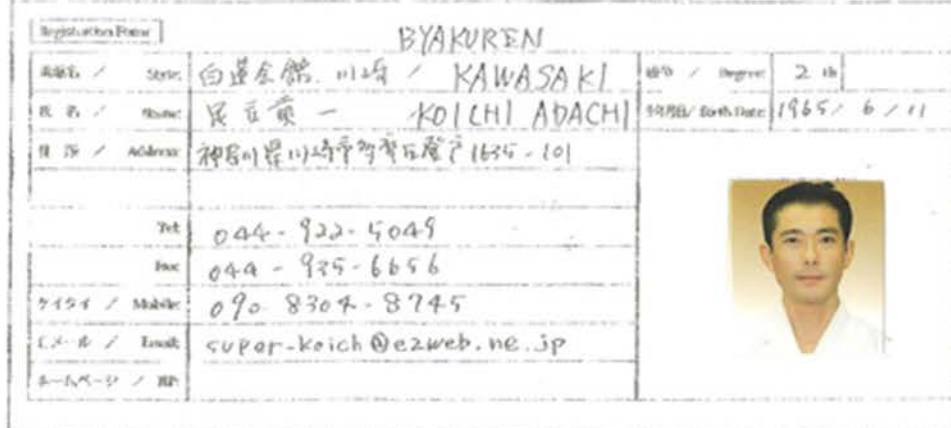 Registration Form
BYAKUREN
Style: 白蓮会館 川崎 / KAWASAKI
段位 / Degree: 2 th
氏名 / Name: 一 KOICHI ADACHI
生年月日 / Birth Date: 1965 / 6 / 11
住所 / Address: 神奈川県川崎市多摩区登戸 1635-101
Tel: 044-922-5049
Fax: 044-935-6656
ケイタイ / Mobile: 090-8304-8745
Eメール / Email: super-koich@ezweb.ne.jp
ホームページ / HP: